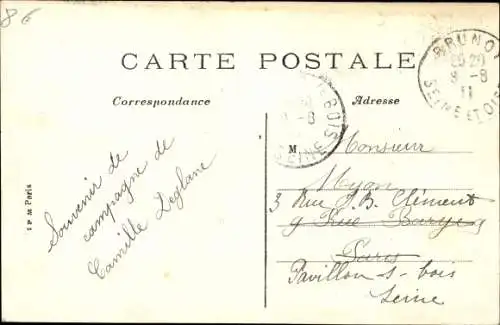 8 €
CARTE POSTALE
Correspondance
Adresse
BRUNOY
20 20
8 - 8
11
SEINE ET OISE
BOIS
- 8
SEINE
M. Monsieur
Myon
3 Rue J. B. Clément
9 Rue Barye
Paris
Pavillon-s-bois
Seine
Souvenir de
campagne de
Camille Deglane
I P M Paris